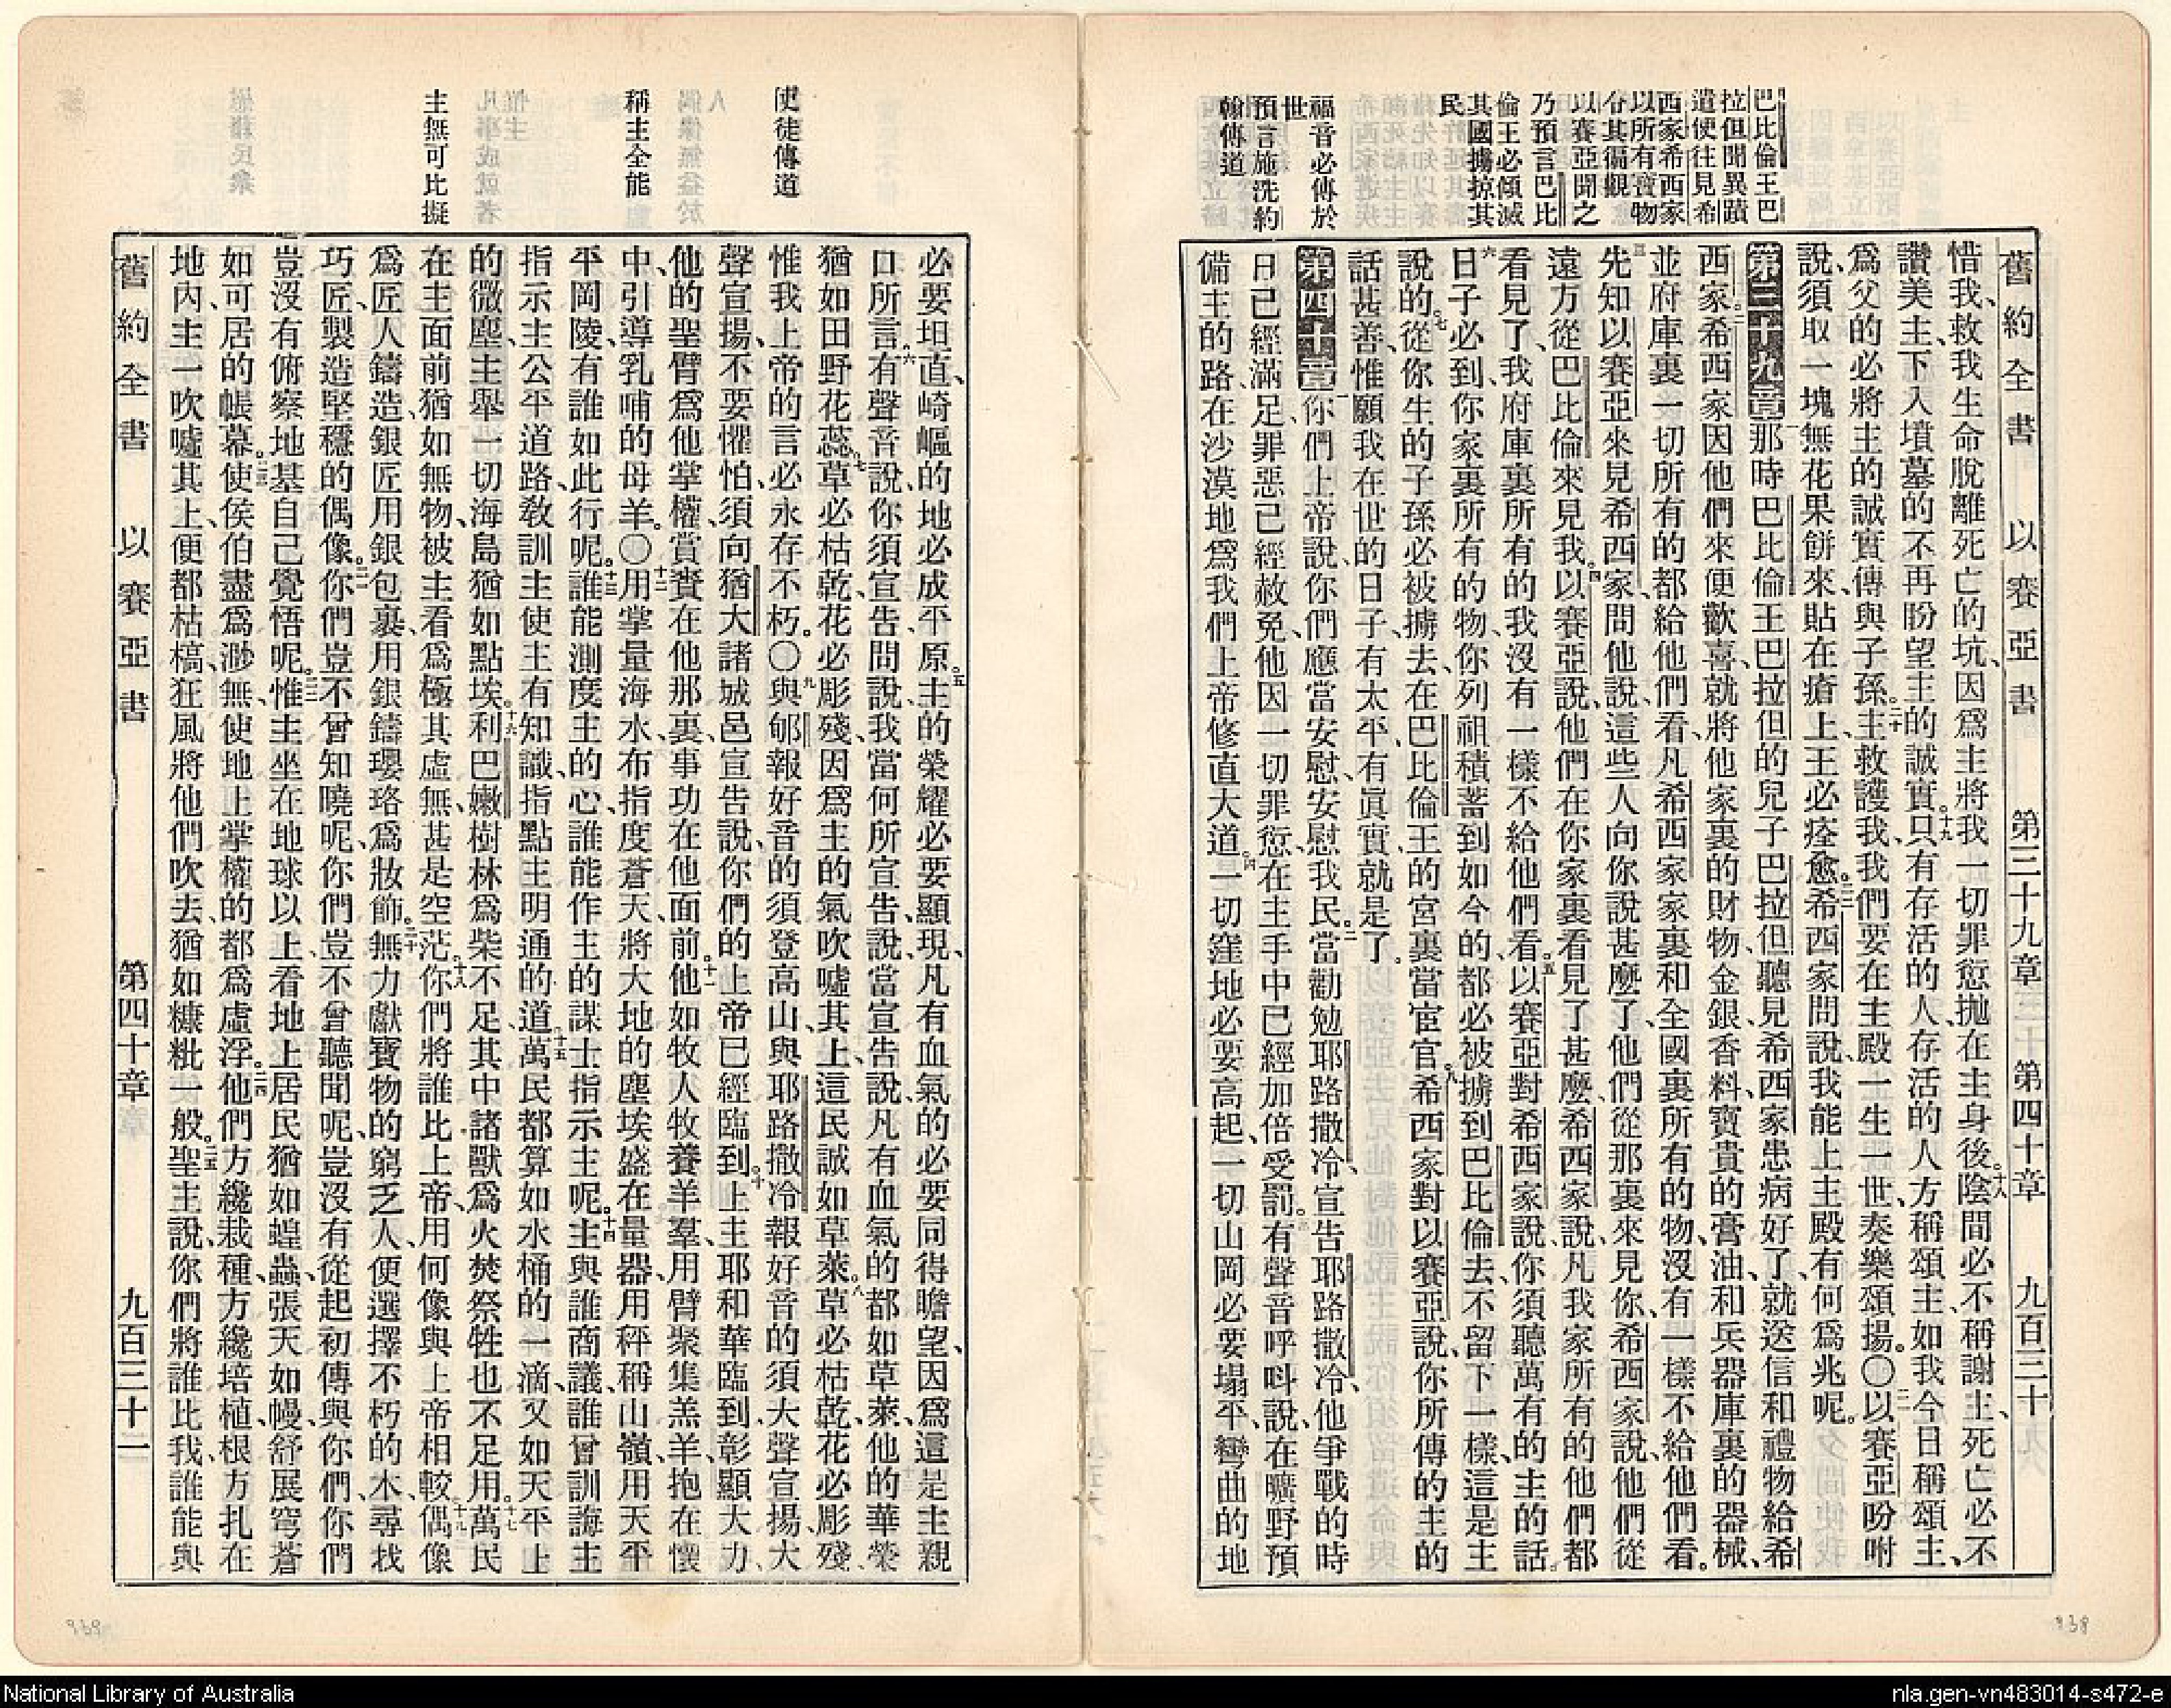 舊約全書 以賽亞書 第三十九章 第四十章 九百三十
巴比倫王巴
拉但聞異蹟
遣使往見希
西家希西家
以所有寶物
令其徧觀
以賽亞聞之
乃預言巴比
倫王必傾滅
其國擄掠其
民
福音必傳於
世
預言施洗約
翰傳道
惜我、救我生命脫離死亡的坑、因爲主將我一切罪愆抛在主身後。十八陰間必不稱謝主、死亡必不
讚美主、下入墳墓的不再盼望主的誠實。十九只有存活的人、存活的人方稱頌主、如我今日稱頌主、
爲父的必將主的誠實傳與子孫。二十主救護我、我們要在主殿一生一世奏樂頌揚。〇二一以賽亞吩咐
說、須取一塊無花果餅來、貼在瘡上、王必痊愈。二二希西家問說、我能上主殿有何爲兆呢。
第三十九章一那時巴比倫王巴拉但的兒子巴拉但、聽見希西家患病好了、就送信和禮物給希
西家。二希西家因他們來便歡喜、就將他家裏的財物、金銀香料、寶貴的膏油、和兵器庫裏的器械、
並府庫裏一切所有的、都給他們看、凡希西家家裏和全國裏所有的物、沒有一樣不給他們看。
三先知以賽亞來見希西家問他說、這些人向你說甚麼了、他們從那裏來見你、希西家說、他們從
遠方從巴比倫來見我。四以賽亞說、他們在你家裏看見了甚麼、希西家說、凡我家所有的他們都
看見了、我府庫裏所有的、我沒有一樣不給他們看。五以賽亞對希西家說、你須聽萬有的主的話。
六日子必到、你家裏所有的物、你列祖積蓄到如今的、都必被擄到巴比倫去、不留下一樣、這是主
說的。七從你生的子孫必被擄去、在巴比倫王的宮裏當宦官。八希西家對以賽亞說、你所傳的主的
話甚善、惟願我在世的日子、有太平、有眞實就是了。
第四十章一你們上帝說、你們應當安慰、安慰我民。二當勸勉耶路撒冷、宣告耶路撒冷、他爭戰的時
日已經滿足、罪惡已經赦免、他因一切罪愆、在主手中已經加倍受罰。三有聲音呼呌說、在曠野預
備主的路、在沙漠地爲我們上帝修直大道。四一切窪地必要高起、一切山岡必要塌平、彎曲的地
使徒傳道
稱主全能
主無可比擬
必要坦直、崎嶇的地必成平原。五主的榮耀必要顯現、凡有血氣的必要同得瞻望、因爲這是主親
口所言。六有聲音說、你須宣告、問說、我當何所宣告、說、當宣告說、凡有血氣的都如草萊、他的華榮
猶如田野花蕊。七草必枯乾、花必彫殘、因爲主的氣吹噓其上、這民誠如草萊。八草必枯乾、花必彫殘、
惟我上帝的言必永存不朽。〇九與郇報好音的須登高山、與耶路撒冷報好音的須大聲宣揚、大
聲宣揚、不要懼怕、須向猶大諸城邑宣告說、你們的上帝已經臨到。十上主耶和華臨到、彰顯大力、
他的聖臂爲他掌權、賞賚在他那裏、事功在他面前。十一他如牧人牧養羊羣、用臂聚集羔羊、抱在懷
中、引導乳哺的母羊。〇十二用掌量海水、布指度蒼天、將大地的塵埃盛在量器、用秤稱山嶺、用天平
平岡陵、有誰如此行呢。十三誰能測度主的心、誰能作主的謀士指示主呢。十四主與誰商議、誰曾訓誨主、
指示主公平道路、教訓主使主有知識、指點主明通的道。十五萬民都算如水桶的一滴、又如天平上
的微塵、主舉一切海島猶如點埃。十六利巴嫩樹林爲柴不足、其中諸獸爲火焚祭牲也不足用。十七萬民
在主面前猶如無物、被主看爲極其虛無、甚是空茫。十八你們將誰比上帝、用何像與上帝相較。十九偶像
爲匠人鑄造、銀匠用銀包裹、用銀鑄瓔珞爲妝飾。二十無力獻寶物的窮乏人、便選擇不朽的木、尋找
巧匠製造堅穩的偶像。二一你們豈不曾知曉呢、你們豈不曾聽聞呢、豈沒有從起初傳與你們、你們
豈沒有俯察地基自己覺悟呢。二二惟主坐在地球以上、看地上居民猶如蝗蟲、張天如幔、舒展穹蒼
如可居的帳幕。二三使侯伯盡爲渺無、使地上掌權的都爲虛浮。二四他們方纔栽種、方纔培植、根方扎在
地內、主一吹噓其上、便都枯槁、狂風將他們吹去、猶如糠粃一般。二五聖主說、你們將誰比我、誰能與
舊約全書 以賽亞書 第四十章 九百三十二
939
938
National Library of Australia
nla.gen-vn483014-s472-e